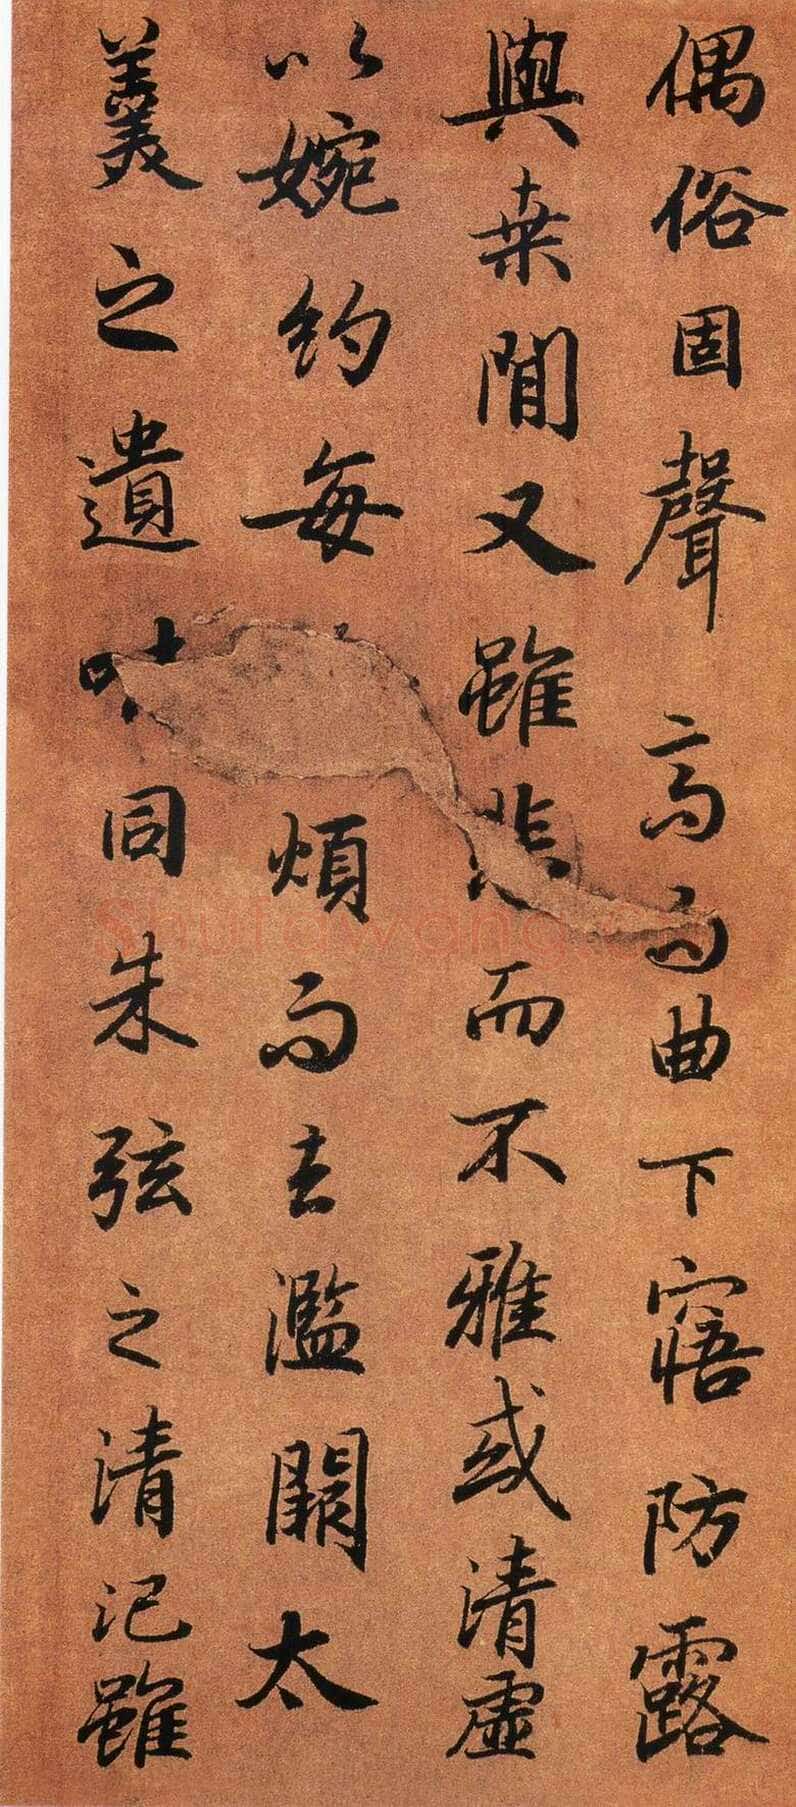 偶俗固聲高而曲下寤防露
與桒閒又雖悲而不雅或清虛
以婉約每煩而去濫闕太
羹之遺味同朱弦之清汜雖
Shufawang.cn